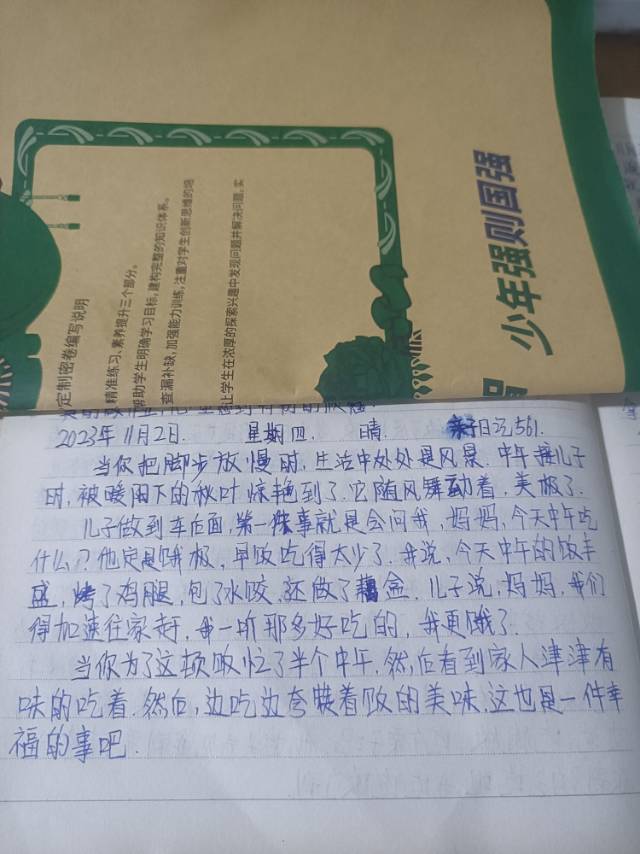 少年强则国强
定制密卷编写说明
精准练习、素养提升三个部分。
帮助学生明确学习目标,建构完整的知识体系。
查漏补缺,加强能力训练,注重对学生创新思维的培
让学生在浓厚的探索兴趣中发现问题并解决问题,实
2023年11月2日. 星期四. 晴. 亲子日记561.
当你把脚步放慢时,生活中处处是风景.中午接儿子
时,被暖阳下的秋叶惊艳到了.它随风舞动着,美极了.
儿子做到车后面,第一件事就是会问我,妈妈,今天中午吃
什么?他定是饿极,早饭吃得太少了.我说,今天中午的饭丰
盛,烤了鸡腿,包了水饺.还做了藕盒.儿子说,妈妈,我们
得加速往家赶,我一听那多好吃的,我更饿了.
当你为了这顿饭忙了半个中午.然后看到家人津津有
味的吃着.然后,边吃边夸赞着饭的美味.这也是一件幸
福的事吧.